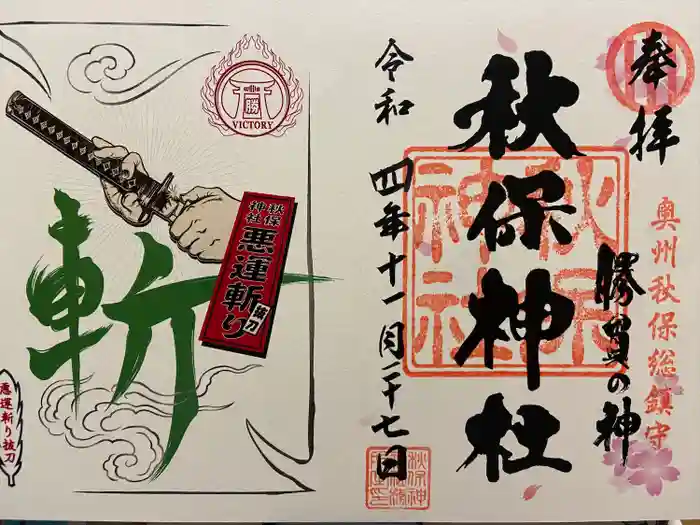 奉拝
奥州秋保総鎮守
勝負の神
秋保神社
秋保神社
令和四年十一月二十七日
勝
VICTORY
秋保神社
悪運斬り
御刀
斬
悪運斬り抜刀